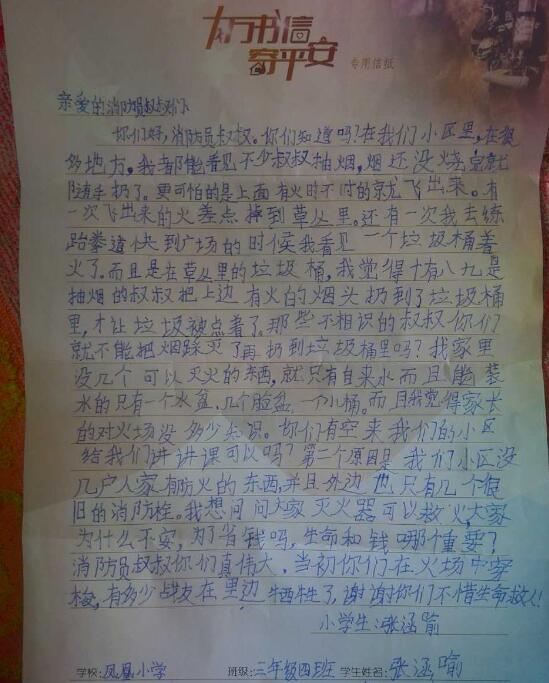 万书信
寄平安
专用信纸
亲爱的消防员叔叔们：
你们好，消防员叔叔。你们知道吗？在我们小区里，在很
多地方，我都能看见不少叔叔抽烟，烟还没烧完就
随手扔了。更可怕的是上面有火时不时的就飞出来。有
一次飞出来的火差点掉到草丛里。还有一次我去练
跆拳道快到广场的时候我看见一个垃圾桶着
火了。而且是在草丛里的垃圾桶，我觉得十有八九是
抽烟的叔叔把上边有火的烟头扔到了垃圾桶
里，才让垃圾被点着了。那些不相识的叔叔你们
就不能把烟踩灭了再扔到垃圾桶里吗？我家里
没几个可以灭火的东西，就只有自来水而且能装
水的只有一个水盆、几个脸盆、一个小桶。而且我觉得家长
的对火场没多少知识。你们有空来我们的小区
给我们讲讲课可以吗？第二个原因是我们小区没
几户人家有防火的东西，并且外边也只有几个很
旧的消防栓。我想问问大家灭火器可以救火，大家
为什么不安，为了省钱吗，生命和钱哪个重要？
消防员叔叔你们真伟大，当初你们在火场中穿
梭，有多少战友在里边牺牲了，谢谢你们不惜生命救人！
小学生：张涵喻
学校：凤凰小学 班级：三年级四班 学生姓名：张涵喻